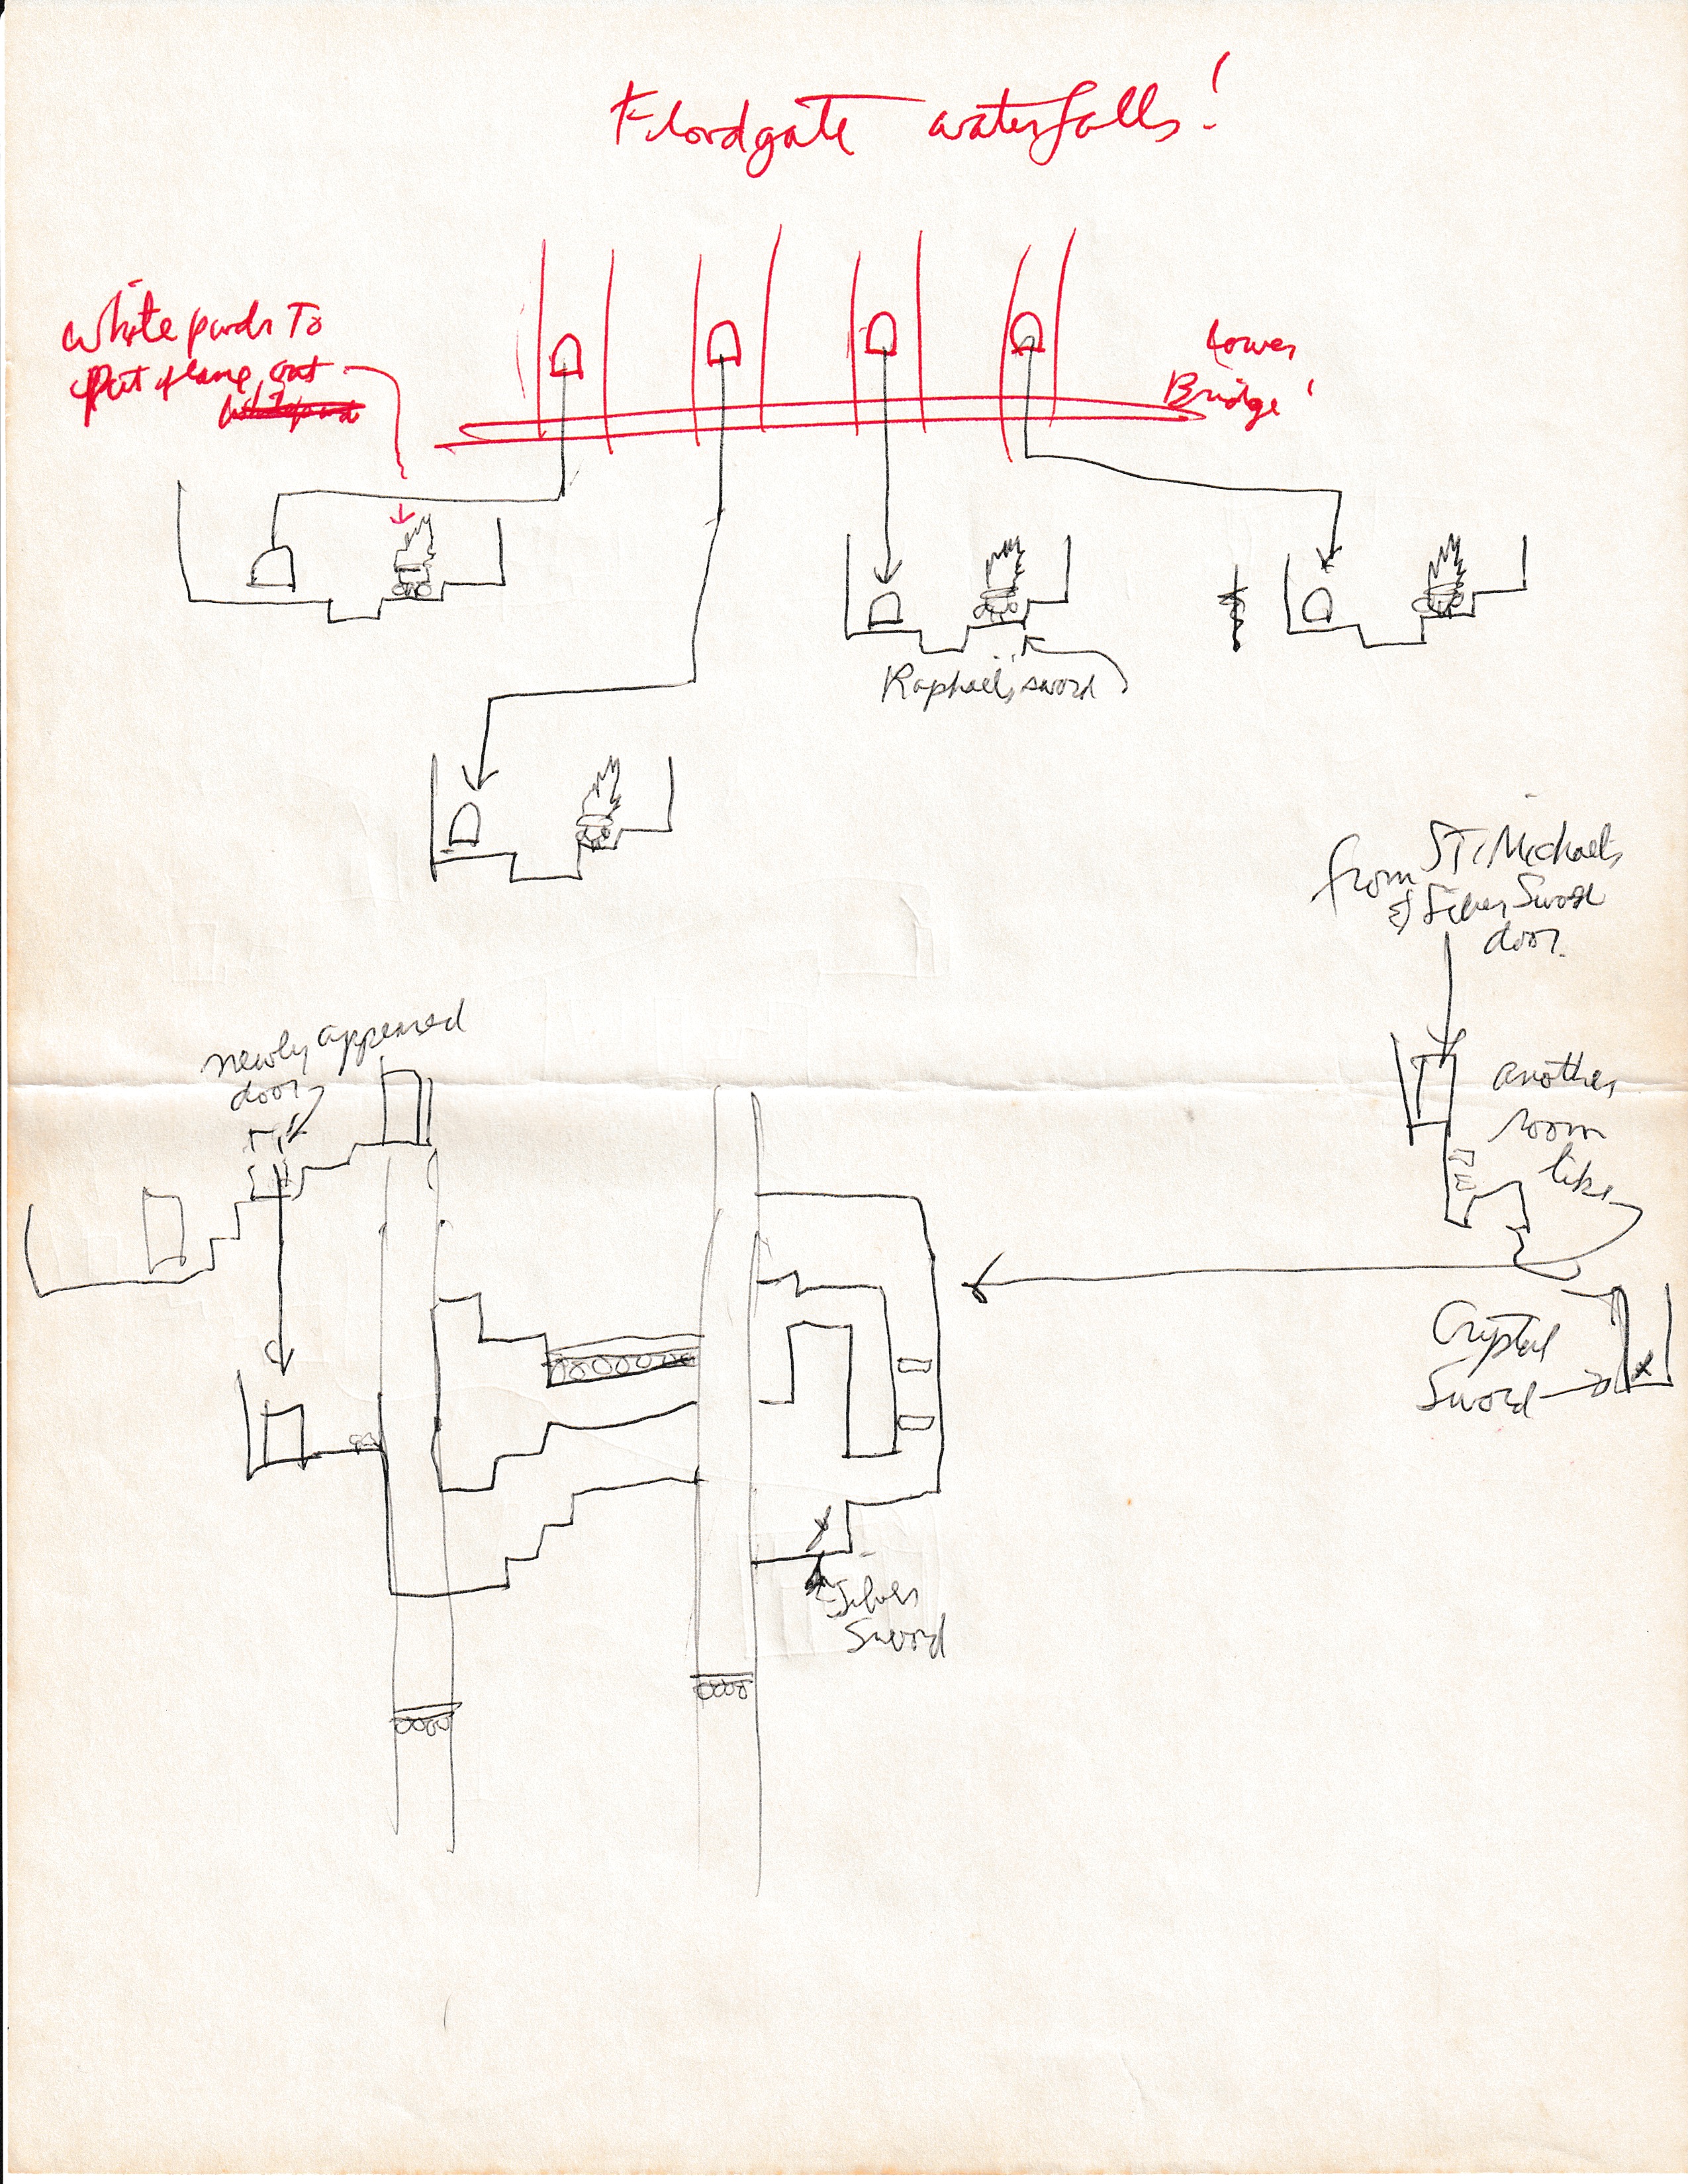 Floodgate waterfalls!
White pards To
Put flame out
Lower
Bridge!
Raphael's sword
from St. Michaels
& Silver Sword
door.
newly appeared
door
another
room
like
Crystal
Sword
Silver
Sword